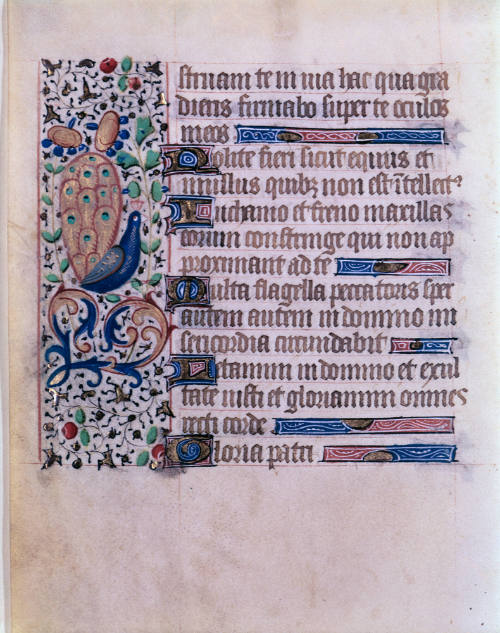 struam te in uia hac qua gra
diens firmabo super te oculos
meos
Nolite fieri sicut equus et
mullus quibꝫ non est ĩtellectꝰ
In chamo et freno maxillas
eorum constringe qui non ap
proximant ad te
Multa flagella peccatoris sper
autem autem in domino mi
sericordia circumdabit
Letamini in domino et exul
tate iusti et gloriamini omnes
recti corde
Gloria patri